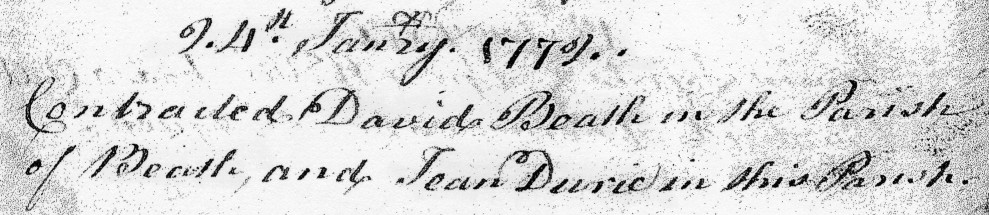 24th. Janry. 1772.
Contracted David Beath in the Parish
of Beath, and Jean Durie in this Parish.